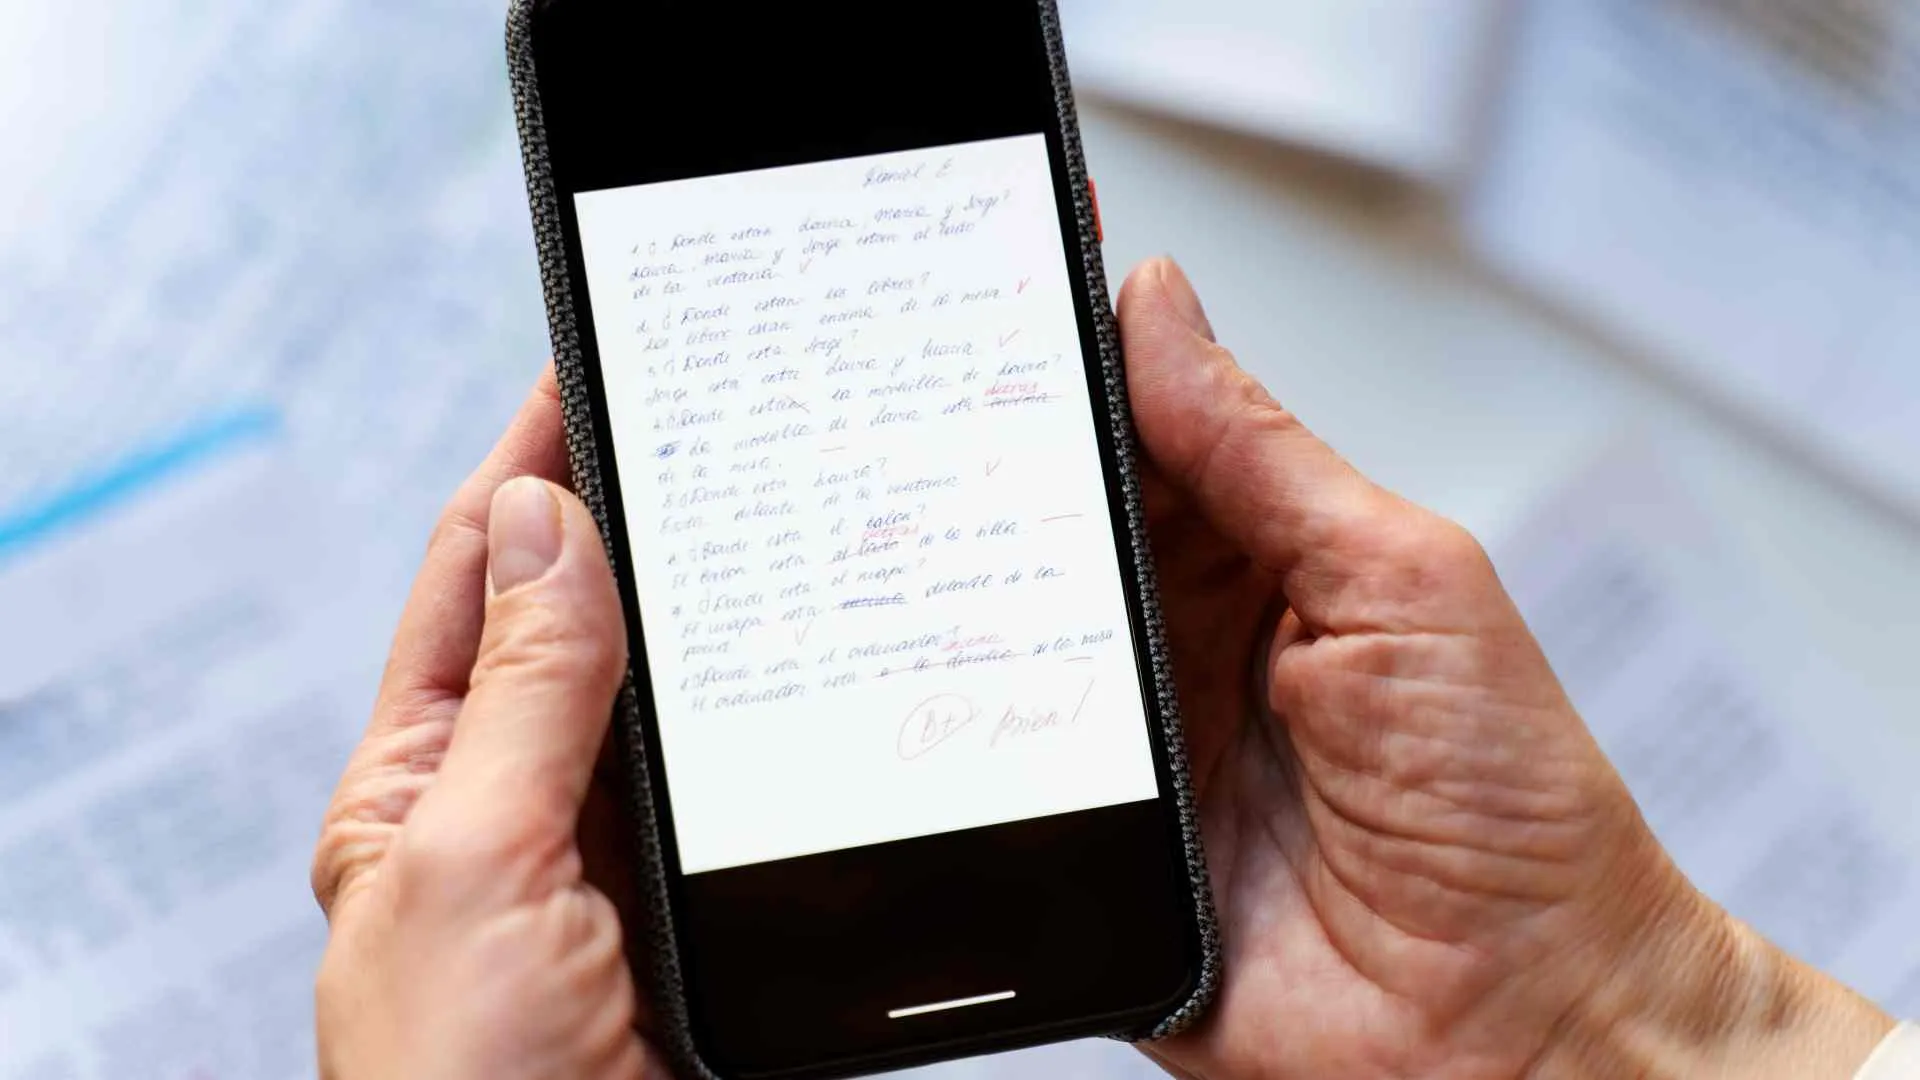 Daniel E
1. ¿ Donde estan Laura, Maria y Jorge?
Laura, Maria y Jorge estan al lado
de la ventana ✓
2. ¿ Donde estan los libros?
Los libros estan encima de la mesa ✓
3. ¿ Donde esta Jorge?
Jorge está entre Laura y Maria ✓
4. ¿ Donde la mochilla de Laura?
detras
La mochilla de Laura esta encima
de la mesa.
5. ¿ Donde esta Laura?
Esta delante de la ventana ✓
¿ Donde esta el balon?
detras
El balon esta al lado de la silla
¿ Donde esta el mapa?
El mapa esta de la
✓
¿ Donde esta el ordenador?
encima
El ordenador esta a la derecha de la mesa
B+ Bien!